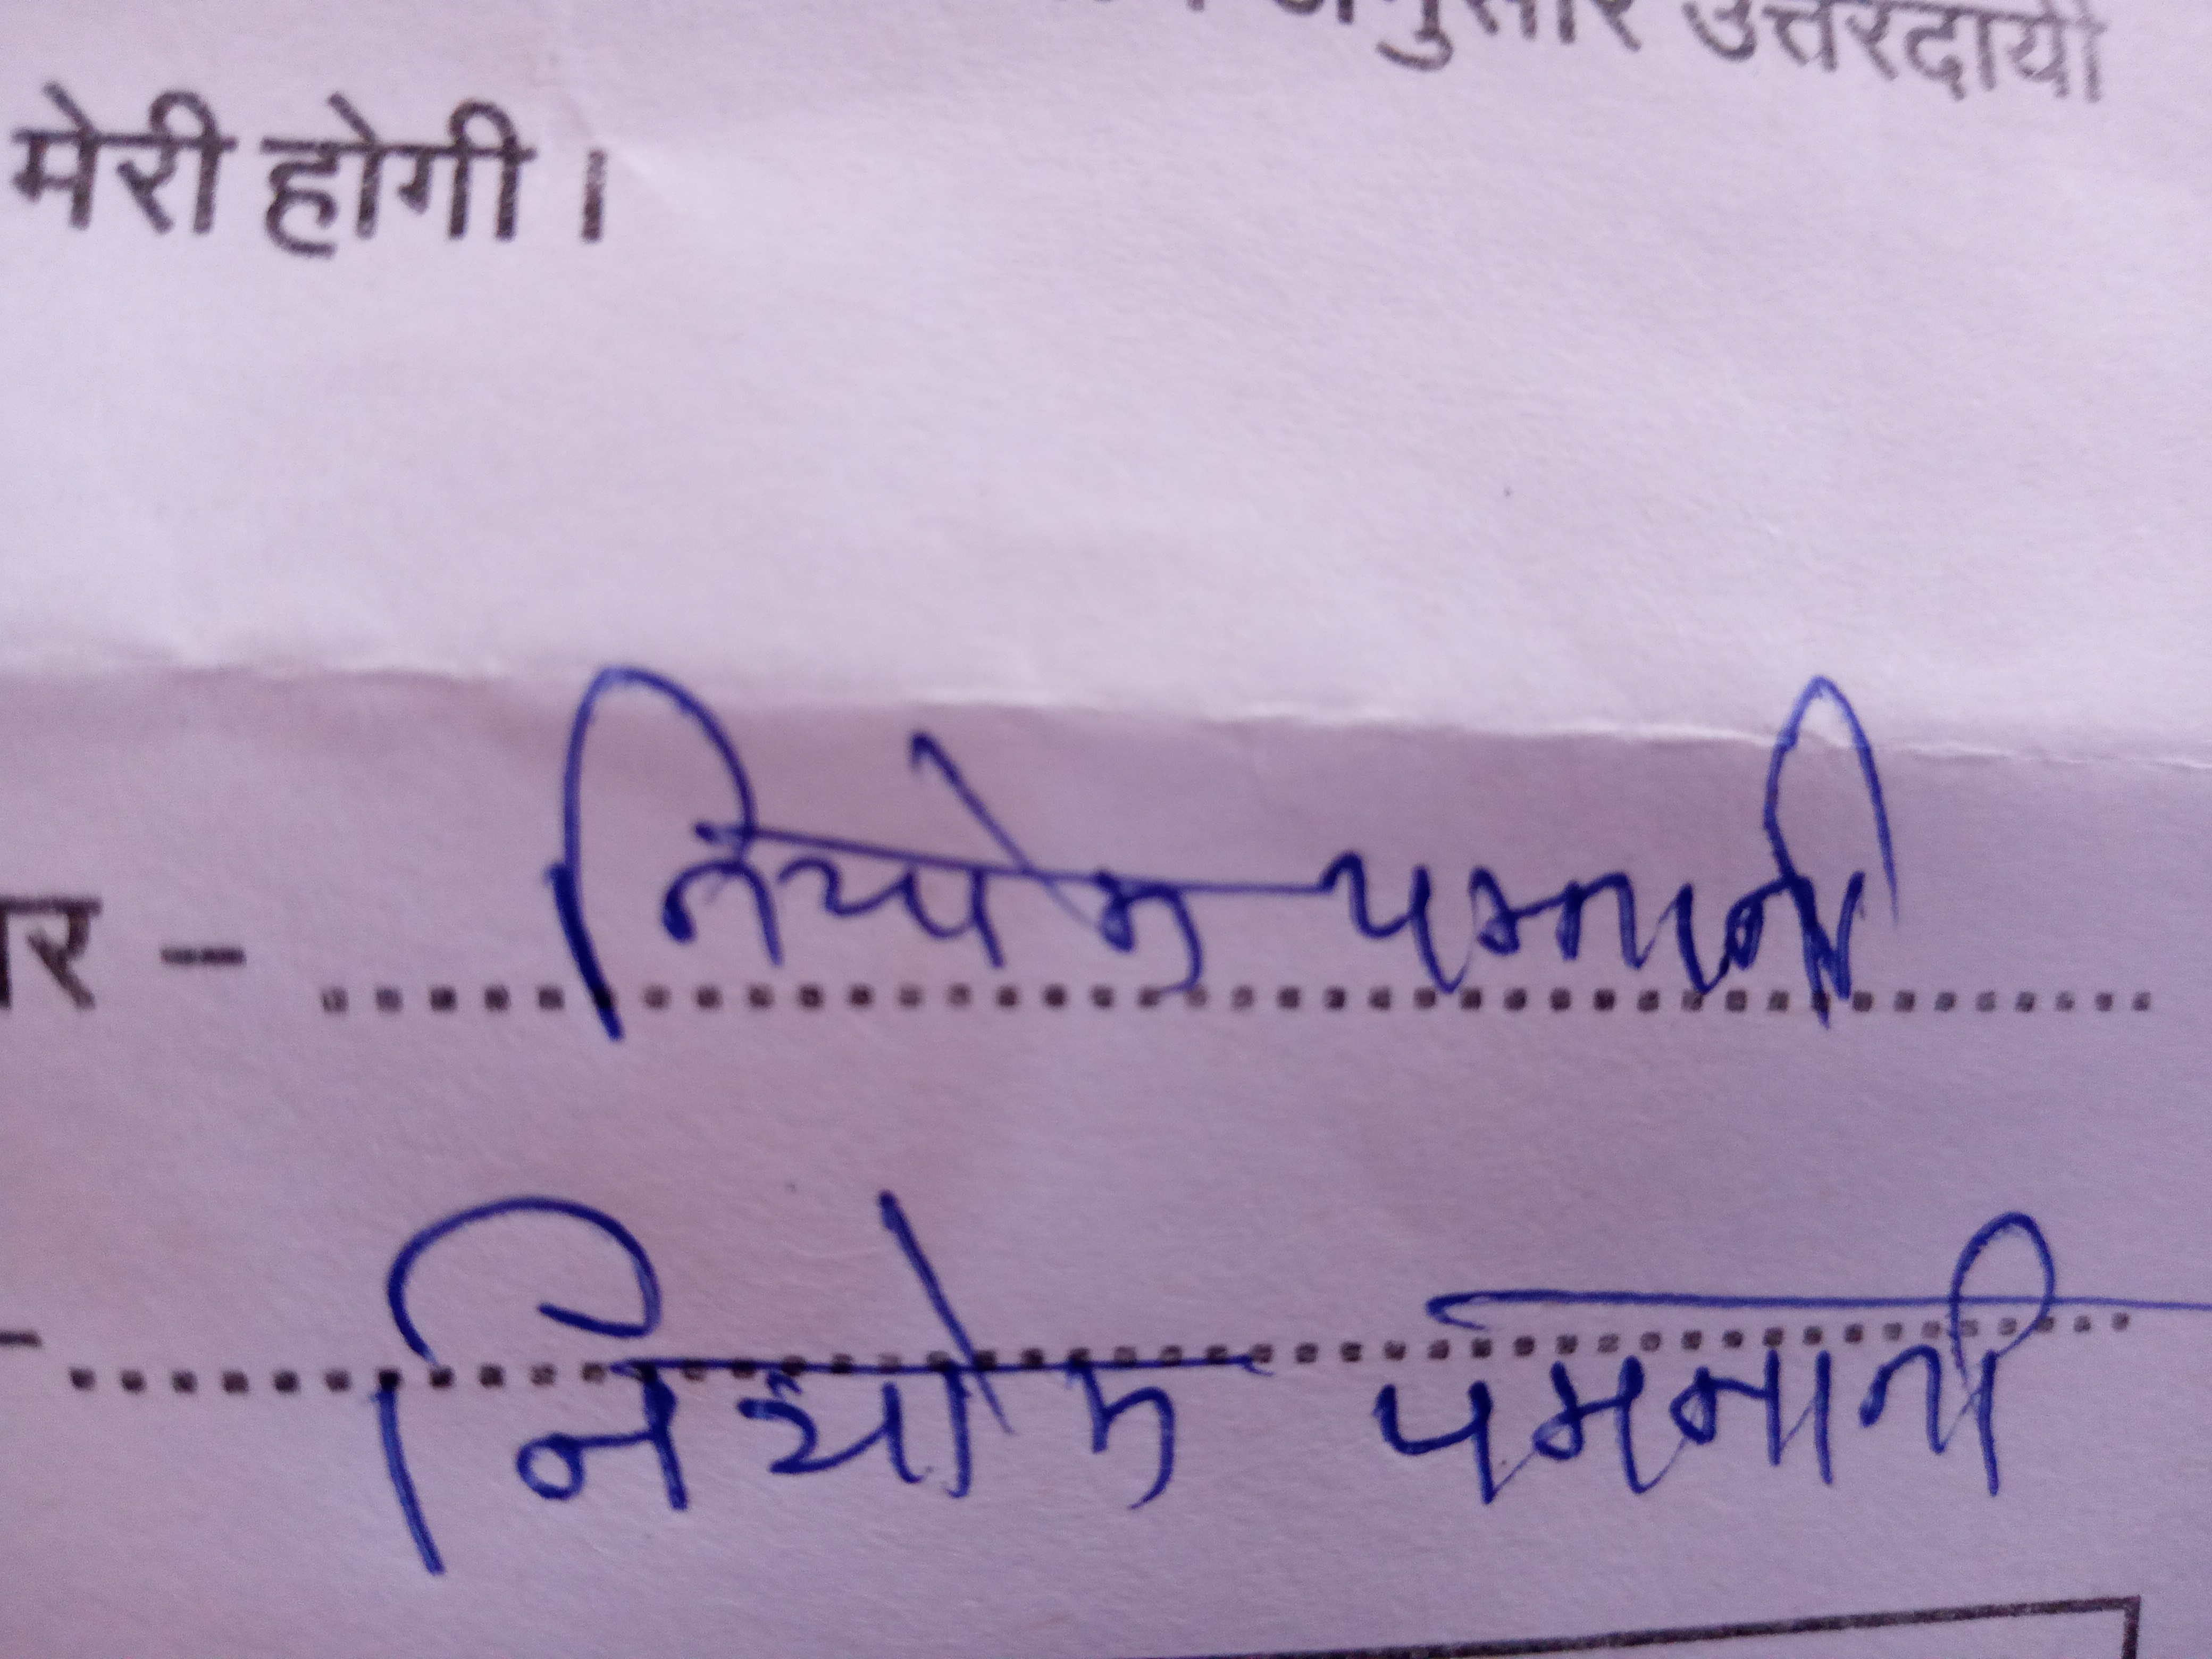 अनुसार उत्तरदायी
मेरी होगी ।
नियोम पमनानी
नियोम पमनानी